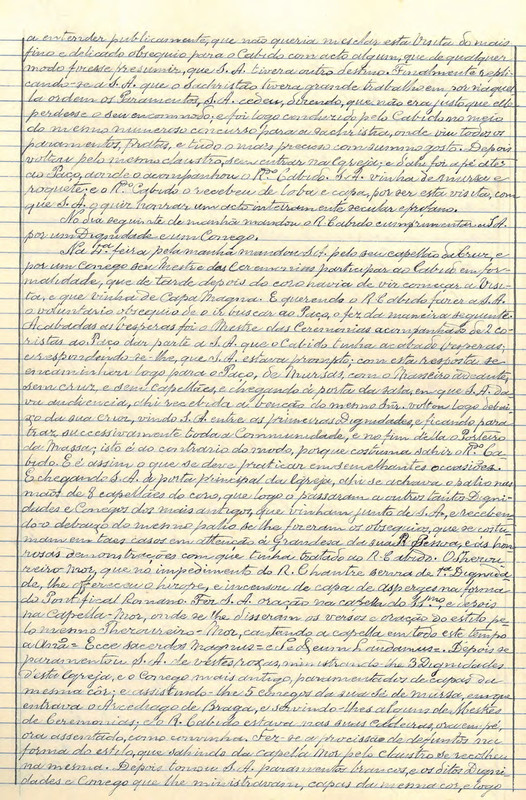 a entender publicamente, que não queria mesclar esta Visita do mais
fino e delicado obsequio para o Cabido com acto algum, que de qualquer
modo fizesse presumir, que S. A. tivera outro destino. Finalmente repli-
cando-se a S. A. que o Sachristão tivera grande trabalho em pôr naquel-
la ordem os Paramentos, S. A. cedeu, dizendo, que não era justo que elle
perdesse o seu encommodo, e foi logo conduzido pelo Cabido no meio
do mesmo numeroso concurso para a sachristia, onde viu todos os
paramentos, Pratas, e tudo o mais precioso com summo gosto. Depois
voltou pelo mesmo claustro, sem entrar na Egreja; e Sahi foi a pé até
ao Paço, donde o acompanhou o R.mo Cabido. S. A. vinha de Murça e
roquete; e o R.mo Cabido o recebeu de loba e capa, por ser esta visita, com
que S. A. o quiz honrar um acto inteiramente secular e profano.
No dia seguinte de manhã mandou o R. Cabido cumprimentar a S. A.
por um Dignidade e um Conego.
Na 4.ª feira pela manhã mandou S. A. pelo seu capellão da Cruz, e
por um Conego seu Mestre das Ceremonias participar ao Cabido em for-
malidade, que de tarde depois do coro havia de vir começar a Visi-
ta, e que vinha de Capa Magna. E querendo o R. Cabido fazer a S. A.
o voluntario obsequio de o ir buscar ao Paço, o fez da maneira seguinte.
Acabadas as Vesperas foi o Mestre das Ceremonias acompanhado de 2 co-
ristas ao Paço dar parte a S. A. que o Cabido tinha acabado Vesperas,
e respondendo-se-lhe, que S. A. estava prompto; com esta resposta se
encaminhou logo para o Paço, de Mursas, com o Masseiro adeante,
sem cruz, e sem Capellães, e chegando á porta da sala, em que S. A. da-
va audiencia, ahi recebida a benção do mesmo Snr. voltou logo debai-
xo da sua cruz, vindo S. A. entre os primeiros Dignidades e ficando para
traz successivamente toda a Communidade, e no fim desta o Porteiro
da Massa; isto é ao contrario do modo, porque costuma sahir o R.mo Ca-
bido. E é assim o que se deve praticar em semelhantes occasiões.
E chegando S. A. á porta principal da Egreja, ahi se achava o palio nas
mãos de 8 capellães do coro, que logo o passaram a outros tantos Digni-
dades e Conegos dos mais antigos, que vinham junto de S. A. e receben-
do-o debaixo do mesmo palio se lhe fizeram os obsequios, que se costu-
mam em taes casos em attenção á Grandesa da sua R. Pessoa, e ás hon-
rosas demonstrações com que tinha tratado ao R. Cabido. O Thezou-
reiro Mor, que no impedimento do R. Chantre servia de 1.ª Dignida-
de, lhe offereceu o hizope, e incensou de capa de asperges na forma
do Pontifical Romano. Fez S. A. oração na capella do SS.mo, e depois
na Capella-Mor, onde se lhe disseram os versos e oração do estylo pe-
lo mesmo Thezoureiro-Mor, cantando a capella em todo este tempo
a Anã = Ecce sacerdos Magnus = e Te Deum laudamus = Depois se
paramentou S. A. de vestes roxas, ministrando-lhe 3 Dignidades
d'esta Egreja, e o Conego mais antigo, paramentados de capas da
mesma côr; e assistindo-lhe 5 conegos da sua Sé de mursa, em que
entrava o Arcediago de Braga, e servindo-lhes algum de Mestre
de Ceremonias; e o R. Cabido estava nas suas cadeiras, ora em pé,
ora assentado, como convinha. Fez-se a procissão de defuntos na
forma do estylo, que sahindo da capella Mor pelo claustro se recolheu
na mesma. Depois tomou S. A. paramento brancos, e os ditos Digni-
dades e Conego que lhe ministravam, capas da mesma cor, e logo